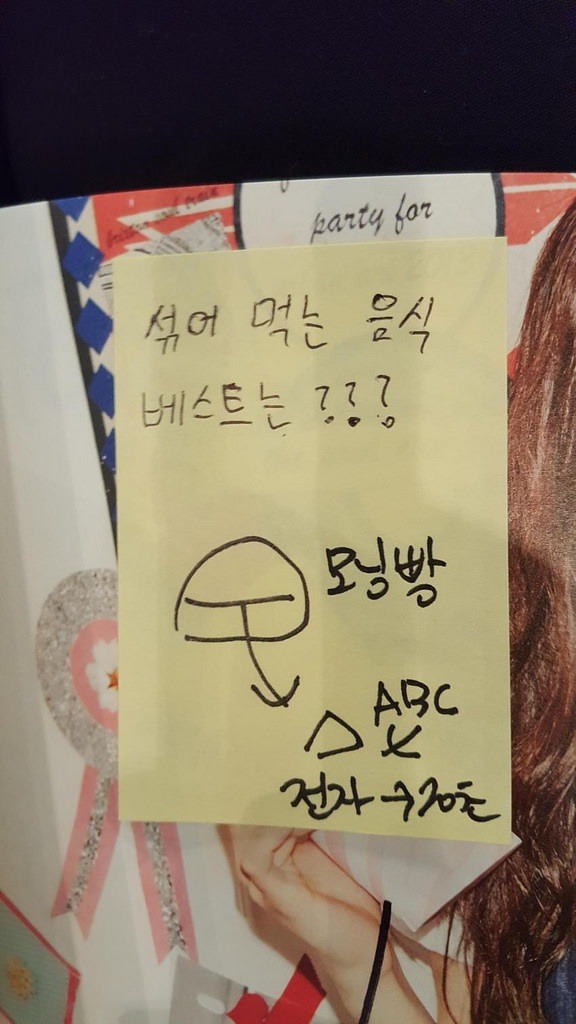 party for
섞어 먹는 음식
베스트는 ???
모닝빵
ABC
전자 → 20초